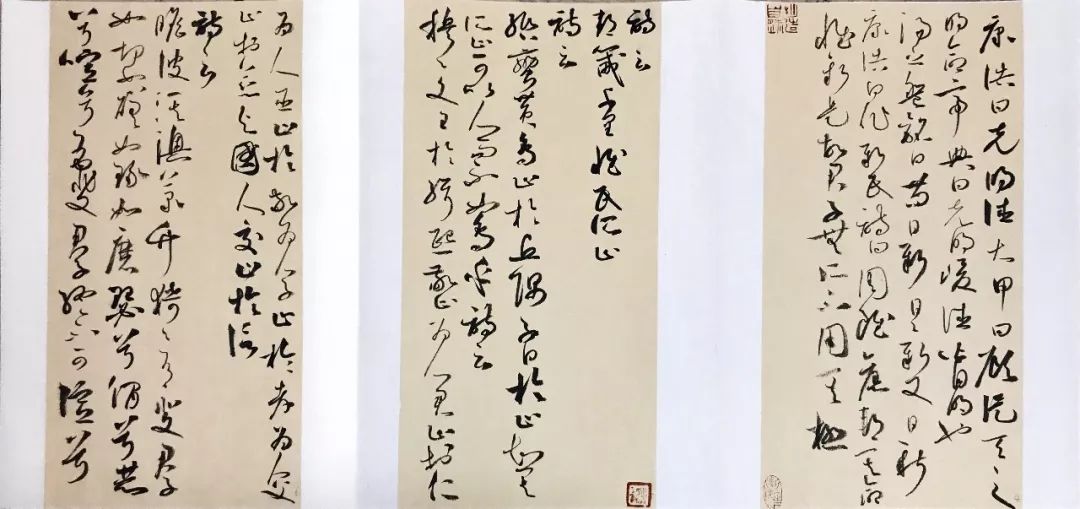 康誥曰克明德大甲曰顧諟天之
明命帝典曰克明峻德皆自明也
湯之盤銘曰苟日新日日新又日新
康誥曰作新民詩曰周雖舊邦其命
惟新是故君子無所不用其極
詩云
邦畿千里惟民所止
詩云
緡蠻黃鳥止於丘隅子曰於止知其
所止可以人而不如鳥乎詩云
穆穆文王於緝熙敬止為人君止於仁
為人臣止於敬為人子止於孝為父
止於慈與國人交止於信
詩云
瞻彼淇澳菉竹猗猗有斐君子
如切如磋如琢如磨瑟兮僩兮赫
兮喧兮有斐君子終不可諠兮